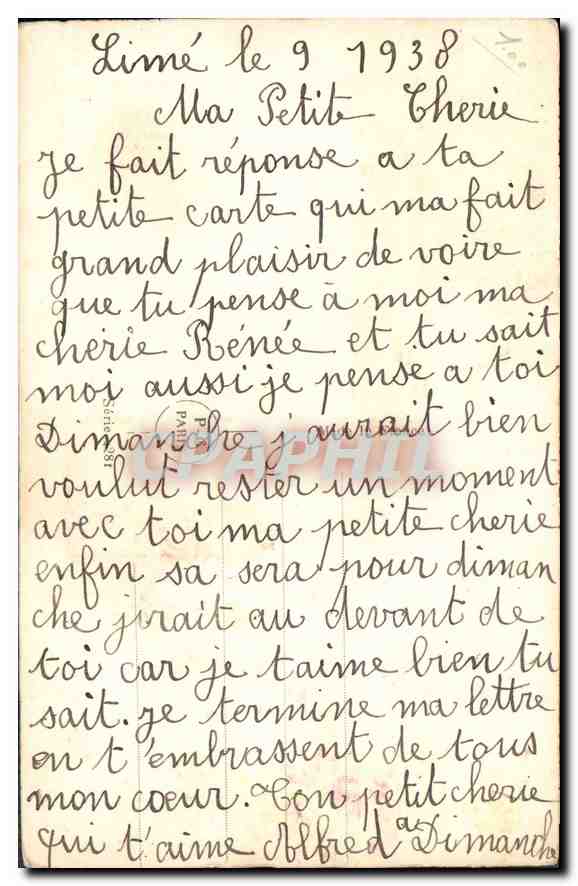 Limé le 9 1938
1.00
Ma Petite Cherie
Je fait réponse a ta
petite carte qui ma fait
grand plaisir de voire
que tu pense à moi ma
cherie Rénée et tu sait
moi aussi je pense a toi
Dimanche j'aurait bien
voulut rester un moment
avec toi ma petite cherie
enfin sa sera pour diman
che j'irait au devant de
toi car je t'aime bien tu
sait. Je termine ma lettre
en t'embrassent de tous
mon cœur. Ton petit cherie
qui t'aime Alfred a Dimanche
Série 281
PARIS
CPAPHIL